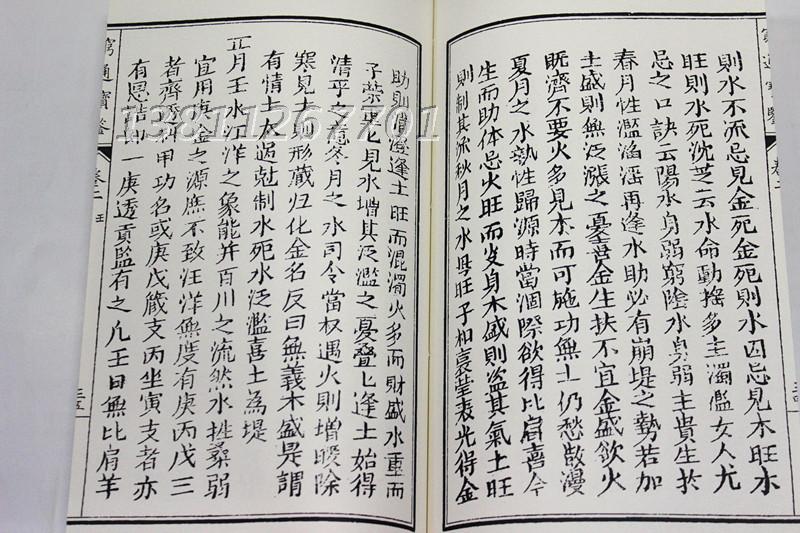 則水不流忌見金死金死則水囚忌見木旺水
旺則水死沈芝云水命動搖多主濁濫女人尤
忌之口訣云陽水身弱窮陰水身弱主貴生於
春月性濫滔淫再逢水助必有崩堤之勢若加
土盛則無泛漲之憂喜金生扶不宜金盛欲火
既濟不要火多見木而可施功無土仍愁散漫
夏月之水執性歸源時當涸際欲得比肩喜金
生而助体忌火旺而炎身木盛則盜其氣土旺
則制其流秋月之水母旺子相裏瑩表光得金
助則清澄逢土旺而混濁火多而財盛水重而
子榮重匕見水增其泛濫之憂叠匕逢土始得
清平之意冬月之水司令當权遇火則增暖除
寒見土則形藏归化金名反曰無義木盛是謂
有情土太過尅制水死水泛濫喜土為堤
正月壬水汪洋之象能并百川之流然水性柔弱
宜用庚金之源庶不致汪洋無度有庚丙戊三
者齊透科甲功名或庚戊藏支丙坐寅支者亦
有恩誥如一庚透貢監有之凡壬日無比肩羊
窮通寶鑒 卷二 壬 三五
13811267701